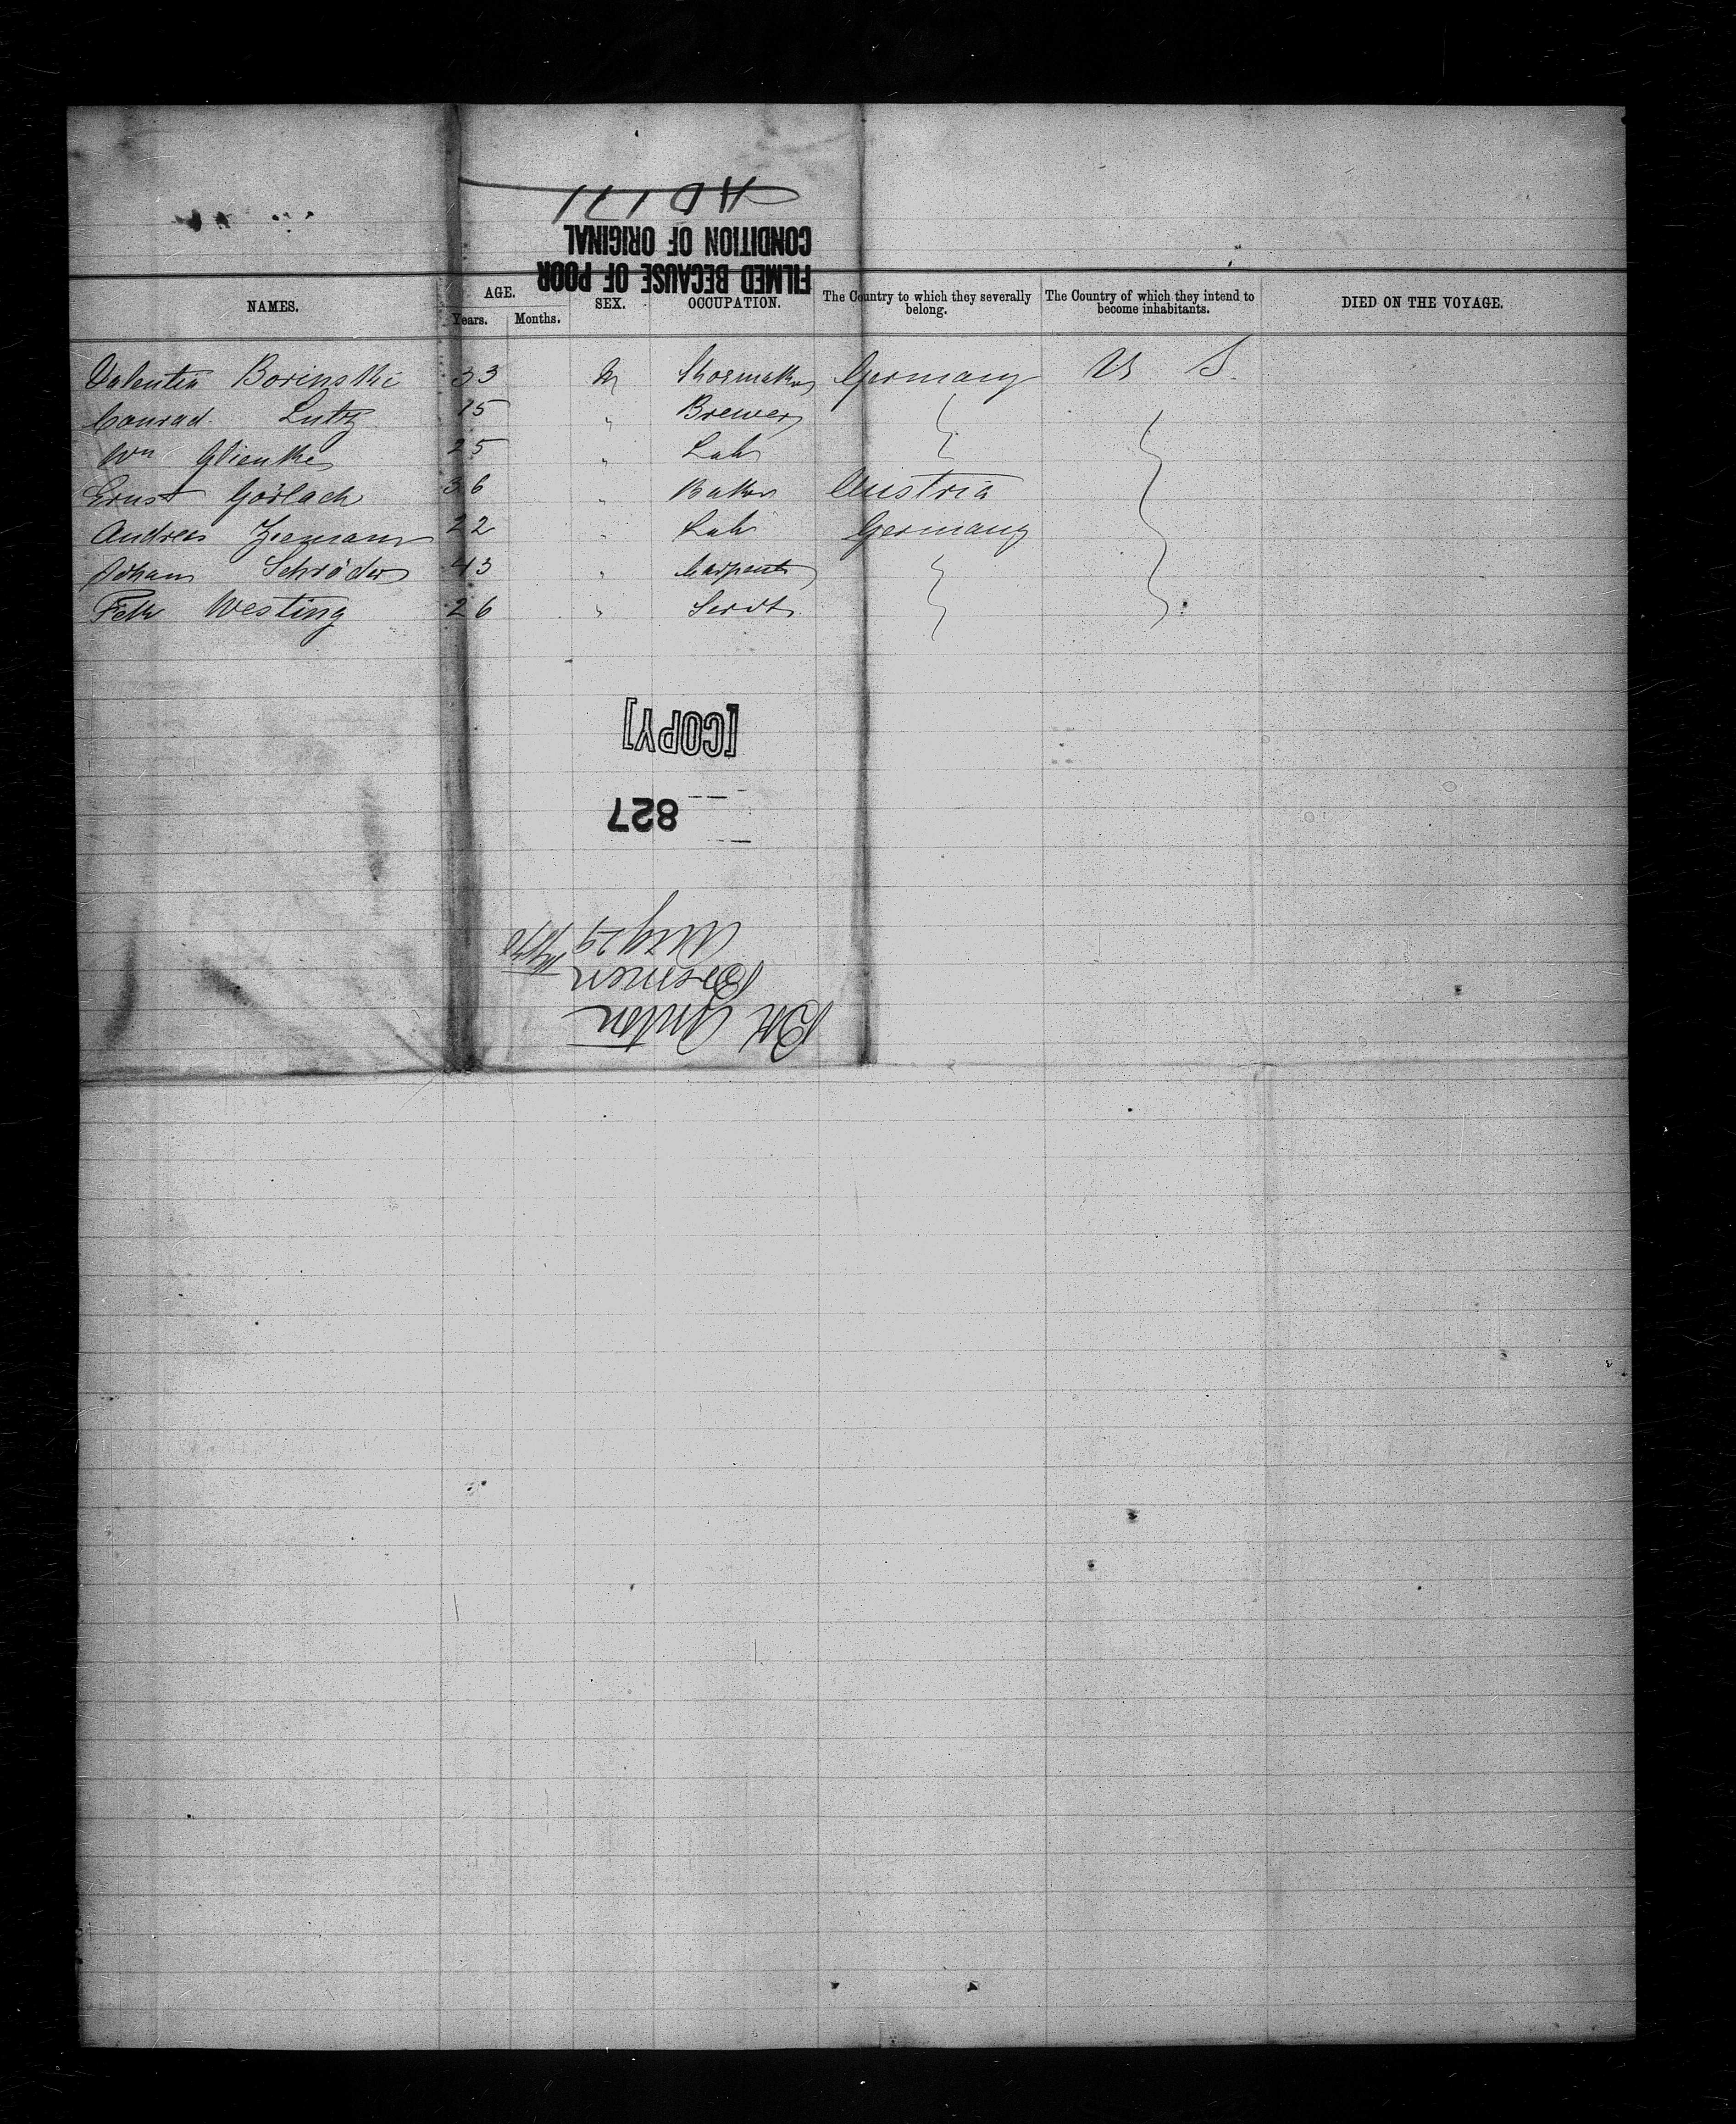 FILMED BECAUSE OF POOR
CONDITION OF ORIGINAL
NAMES. AGE. SEX. OCCUPATION. The Country to which they severally belong. The Country of which they intend to become inhabitants. DIED ON THE VOYAGE.
Years. Months.
Valentin Borinski 33 M Shoemaker Germany U S.
Conrad Lutz 25 " Brewer
Wm Glienke 25 " Lab
Ernst Görlach 36 " Baker Austria
Andreas Ziemann 22 " Lab Germany
Johann Schröder 43 " Carpenter
Westing 26 " Servt
[COPY]
827
Bk Anton
Bremen
Aug 29